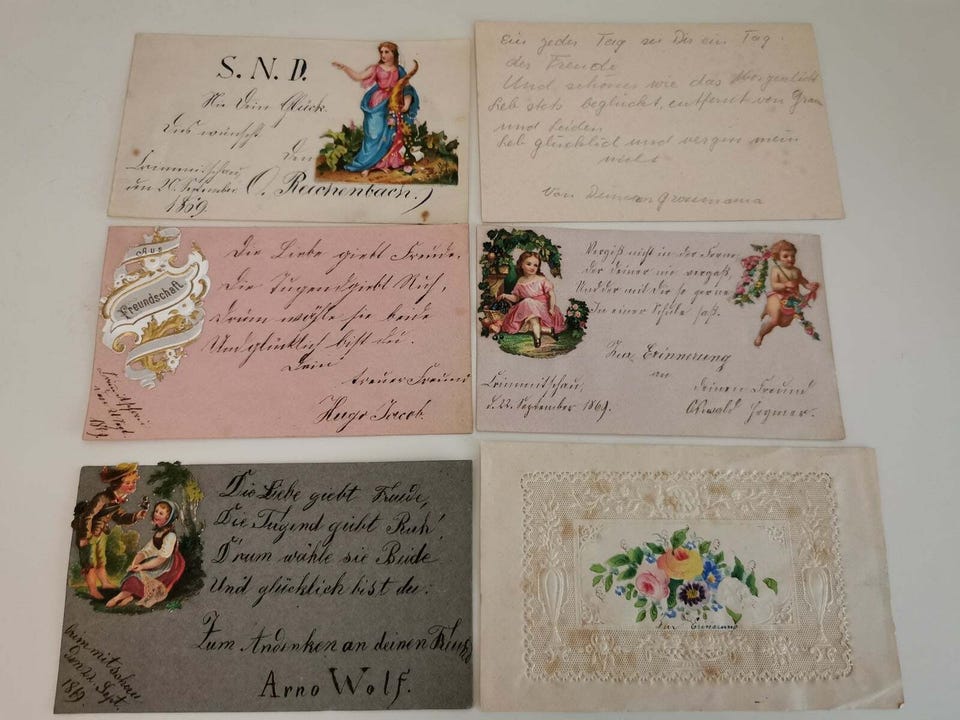 S. N. D.
Nur Dein Glück.
Das wünscht
Den
Crimmitschau
den 20. September O. Reichenbach.)
1869.
Ein jeder Tag sei Dir ein Tag
der Freude
Und schönes wie das Morgenlicht
Leb stets beglückt, entfernt von Gram
und Leiden
Leb glücklich und vergiss mein
nicht
Von Deiner Grossmama
Aus
Freundschaft
Die Liebe giebt Freude,
Die Tugend giebt Ruh,
Drum wähle sie beide
Und glücklich bist du.
Dein
treuer Freund
Hugo Jacob.
Vergiß nicht in der Ferne
der deiner nie vergaß,
Und der mit Dir so gerne
In einer Schule saß.
Zur Erinnerung
an
deinen Freund
Crimmitschau,
d. 22. September 1869.
Oswald
Die Liebe giebt Freude,
Die Tugend giebt Ruh!
Drum wähle sie Beide
Und glücklich bist du.
Zum Andenken an deinen Freund
Arno Wolf.
Crimmitschau
Den 22. Sept.
1869.
Zur Erinnerung